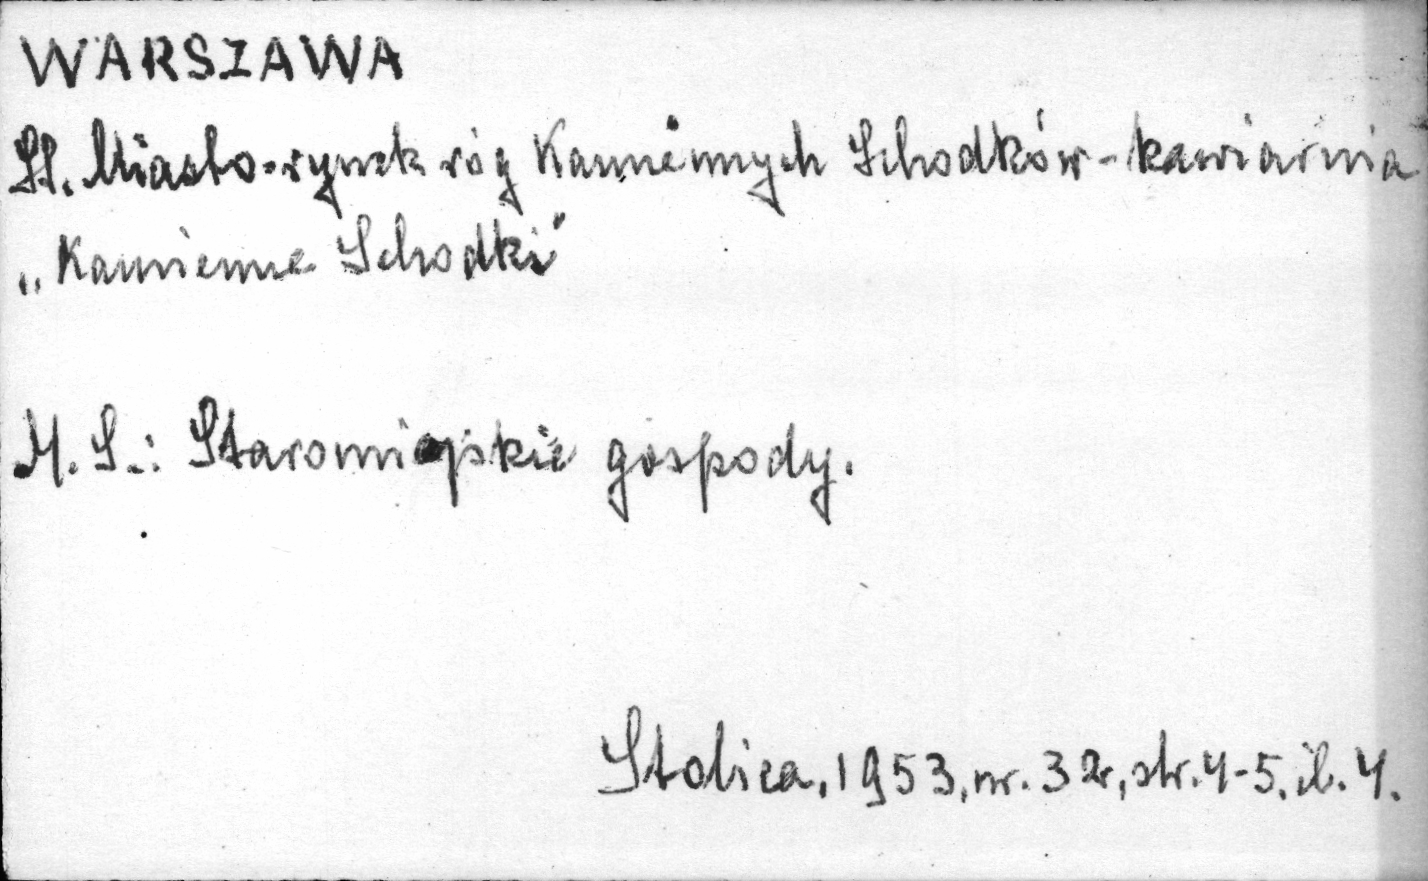 WARSZAWA
St. Miasto-rynek róg Kamiennych Schodków-kawiarnia
„Kamienne Schodki"
M. S.: Staromiejskie gospody.
Stolica, 1953, nr. 32, str. 4-5, il. 4.